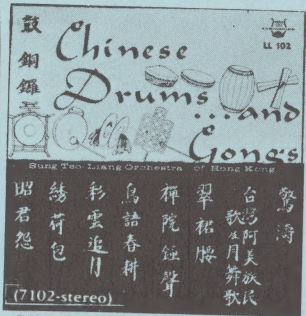 鼓銅鑼
Chinese
Drums
...and
Gongs
LL 102
Sung Teo-Liang Orchestra of Hong Kong
驚濤
台灣阿美族民歌及月舞歌
翠裙腰
禪院鐘聲
鳥語春耕
彩雲追月
綉荷包
昭君怨
(7102-stereo)